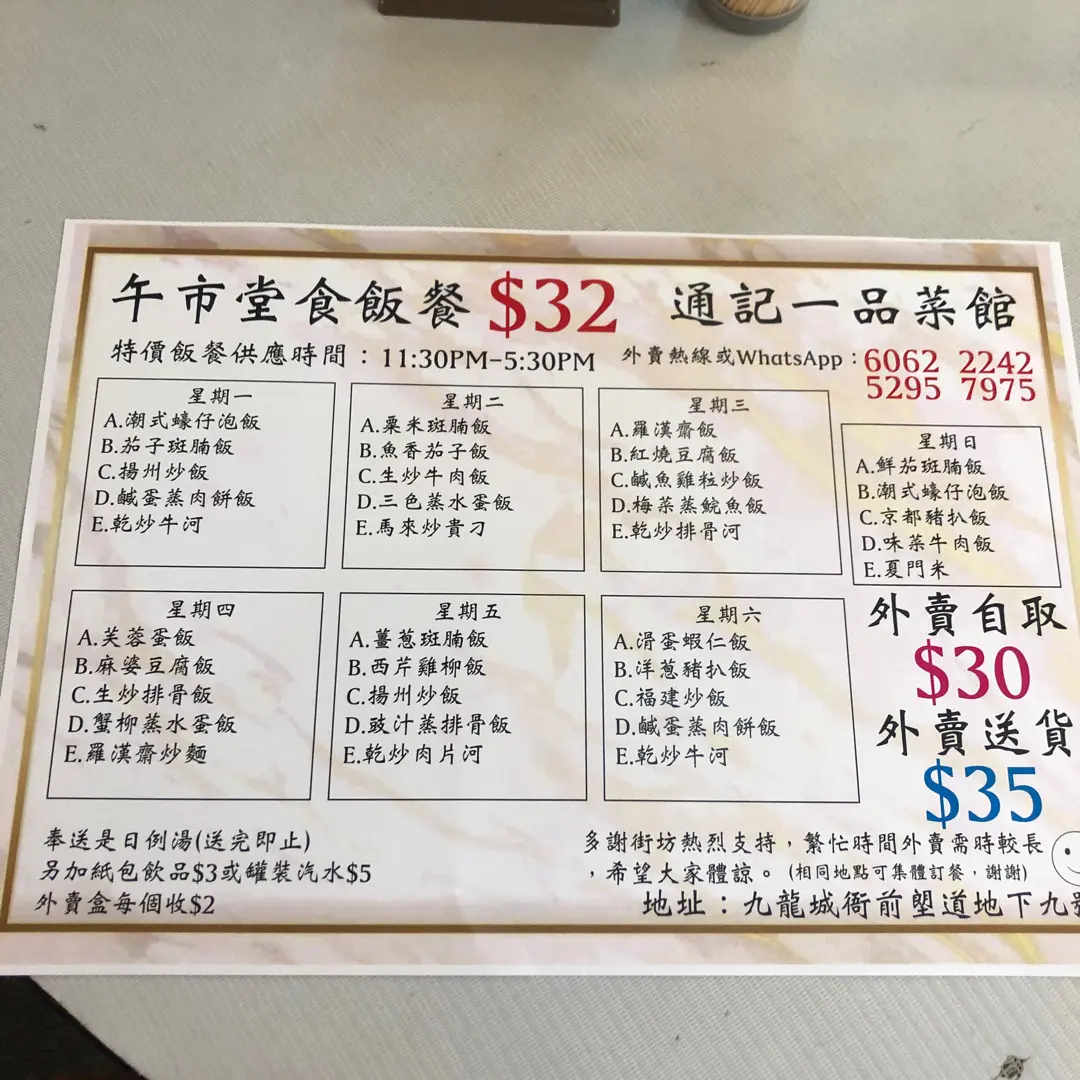 午市堂食飯餐 $32 通記一品菜館
特價飯餐供應時間：11:30PM-5:30PM 外賣熱線或WhatsApp：6062 2242
5295 7975
星期一
A.潮式蠔仔泡飯
B.茄子斑腩飯
C.揚州炒飯
D.鹹蛋蒸肉餅飯
E.乾炒牛河
星期二
A.粟米斑腩飯
B.魚香茄子飯
C.生炒牛肉飯
D.三色蒸水蛋飯
E.馬來炒貴刁
星期三
A.羅漢齋飯
B.紅燒豆腐飯
C.鹹魚雞粒炒飯
D.梅菜蒸鯇魚飯
E.乾炒排骨河
星期日
A.鮮茄斑腩飯
B.潮式蠔仔泡飯
C.京都豬扒飯
D.味菜牛肉飯
E.夏門米
星期四
A.芙蓉蛋飯
B.麻婆豆腐飯
C.生炒排骨飯
D.蟹柳蒸水蛋飯
E.羅漢齋炒麵
星期五
A.薑蔥斑腩飯
B.西芹雞柳飯
C.揚州炒飯
D.豉汁蒸排骨飯
E.乾炒肉片河
星期六
A.滑蛋蝦仁飯
B.洋蔥豬扒飯
C.福建炒飯
D.鹹蛋蒸肉餅飯
E.乾炒牛河
外賣自取
$30
外賣送貨
$35
奉送是日例湯(送完即止)
另加紙包飲品$3或罐裝汽水$5
外賣盒每個收$2
多謝街坊熱烈支持，繁忙時間外賣需時較長
，希望大家體諒。(相同地點可集體訂餐，謝謝)
地址：九龍城衙前塱道地下九號